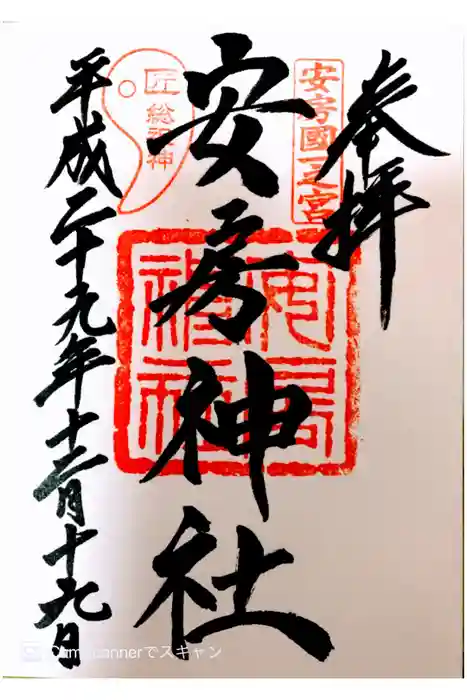 奉拝
安房國一之宮
安房神社
安房神社
匠 総祖神
平成二十九年十二月十九日
CamScannerでスキャン